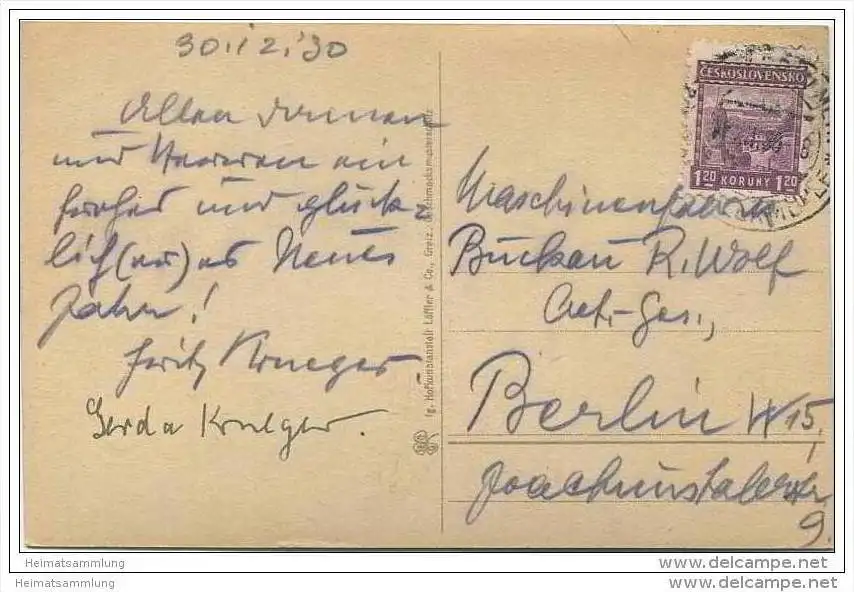 30.12.'30
Allen Damen
und Herren ein
frohes und glück-
lich(er)es Neues
Jahr!
Fritz Krueger
Gerda Krueger.
Ig. Hofkunstanstalt Löffler & Co., Greiz.
ČESKOSLOVENSKO
1.20 KORUNY 1.20
Maschinenfabrik
Buckau R. Wolf
Act.-Ges.,
Berlin W15,
Joachimstalerstr
9.
Heimatsammlung
www.delcampe.net
Heimatsammlung
www.delcampe.net